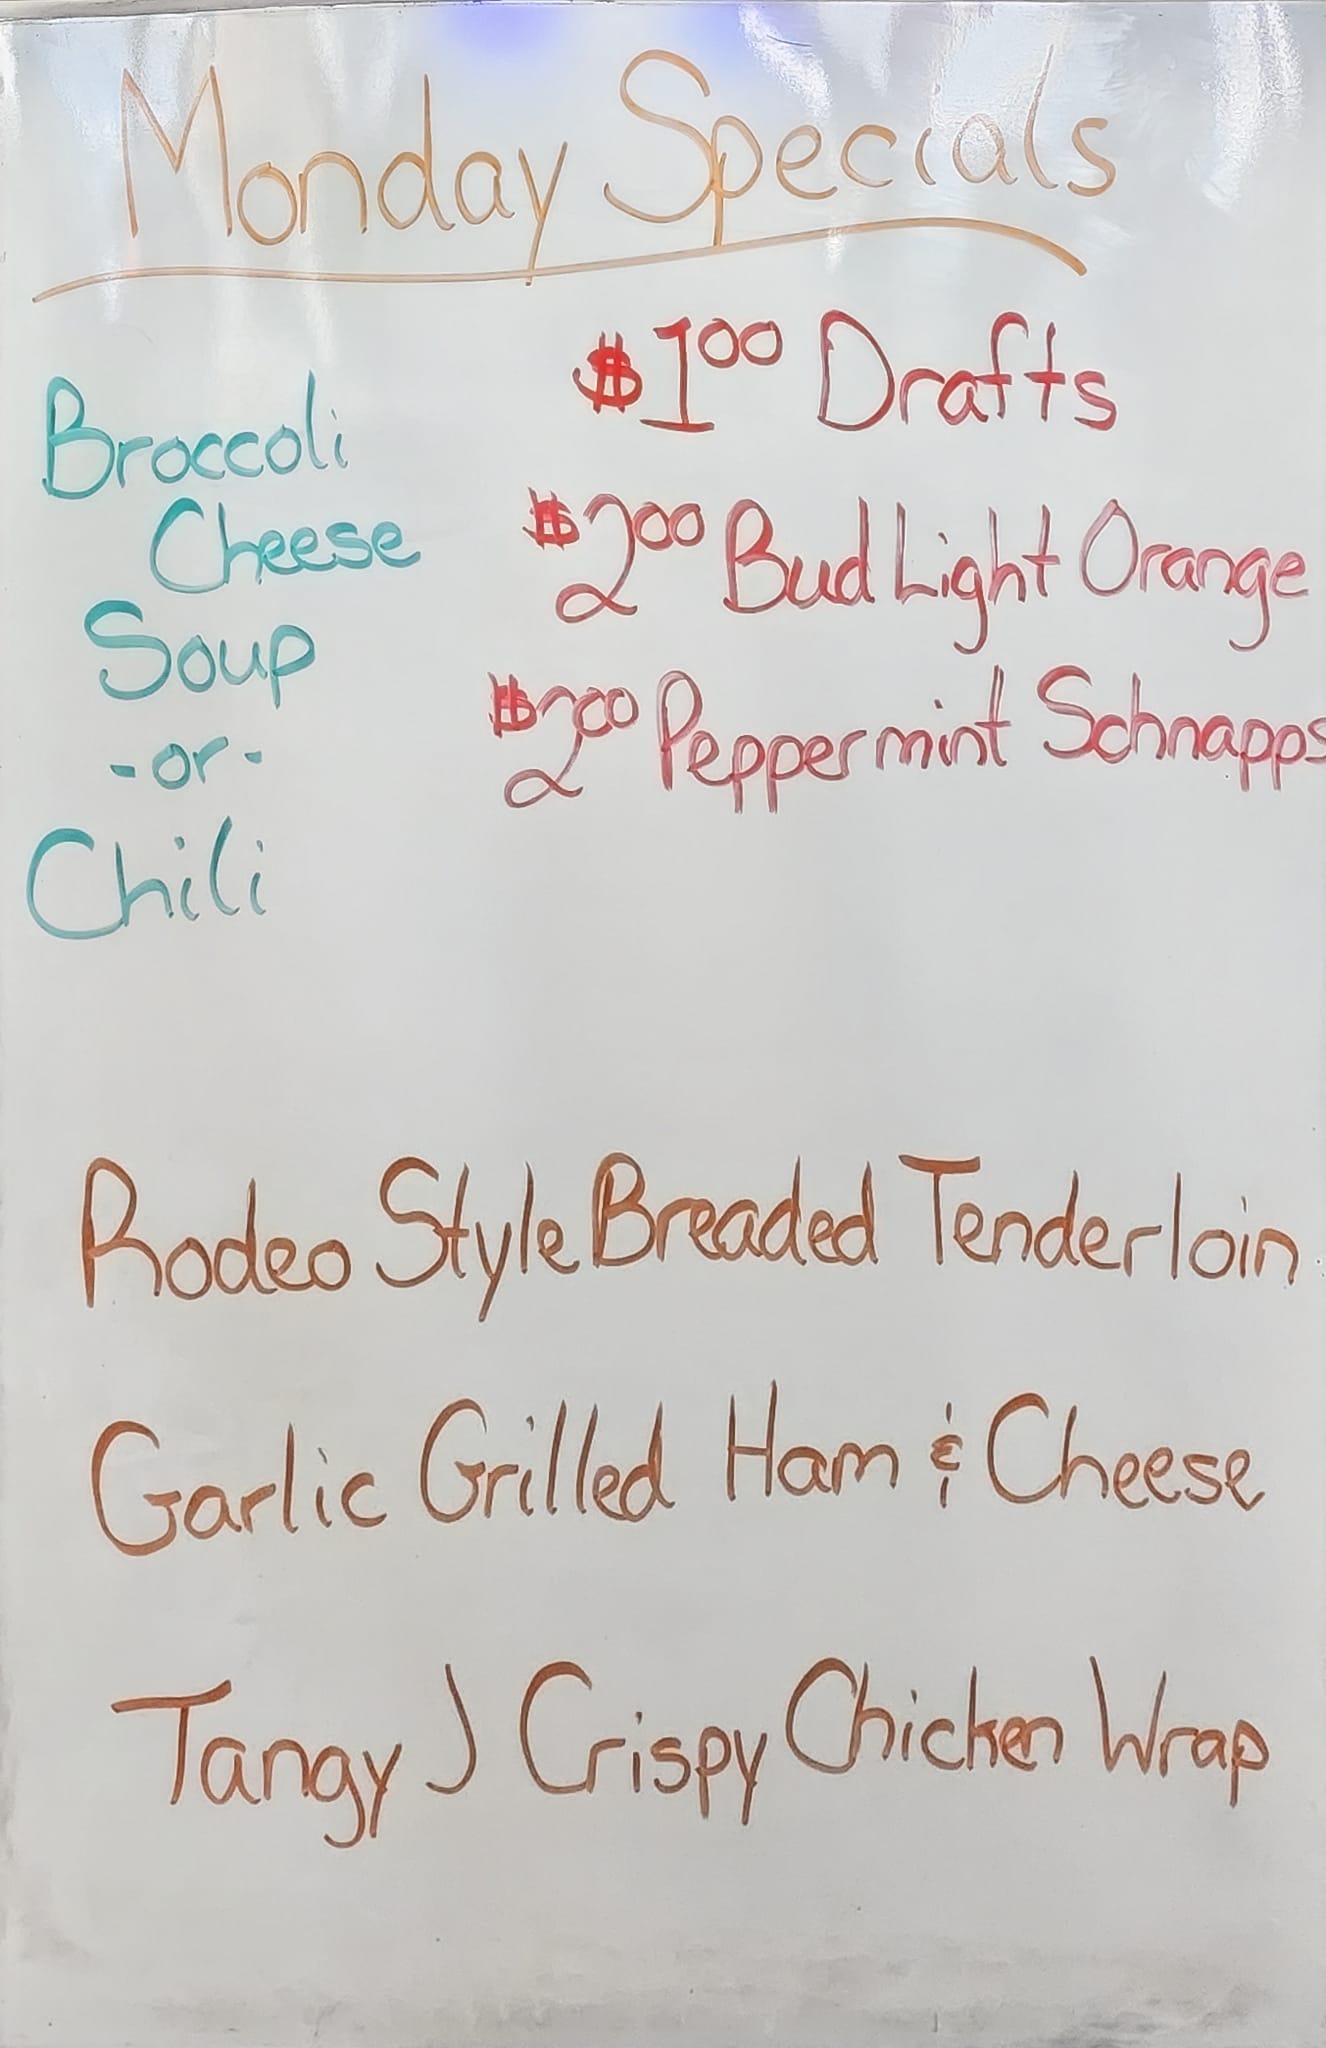 Monday Specials
Broccoli
Cheese
Soup
-or-
Chili
$1.00 Drafts
$2.00 Bud Light Orange
$2.00 Peppermint Schnapps
Rodeo Style Breaded Tenderloin
Garlic Grilled Ham & Cheese
Tangy J Crispy Chicken Wrap